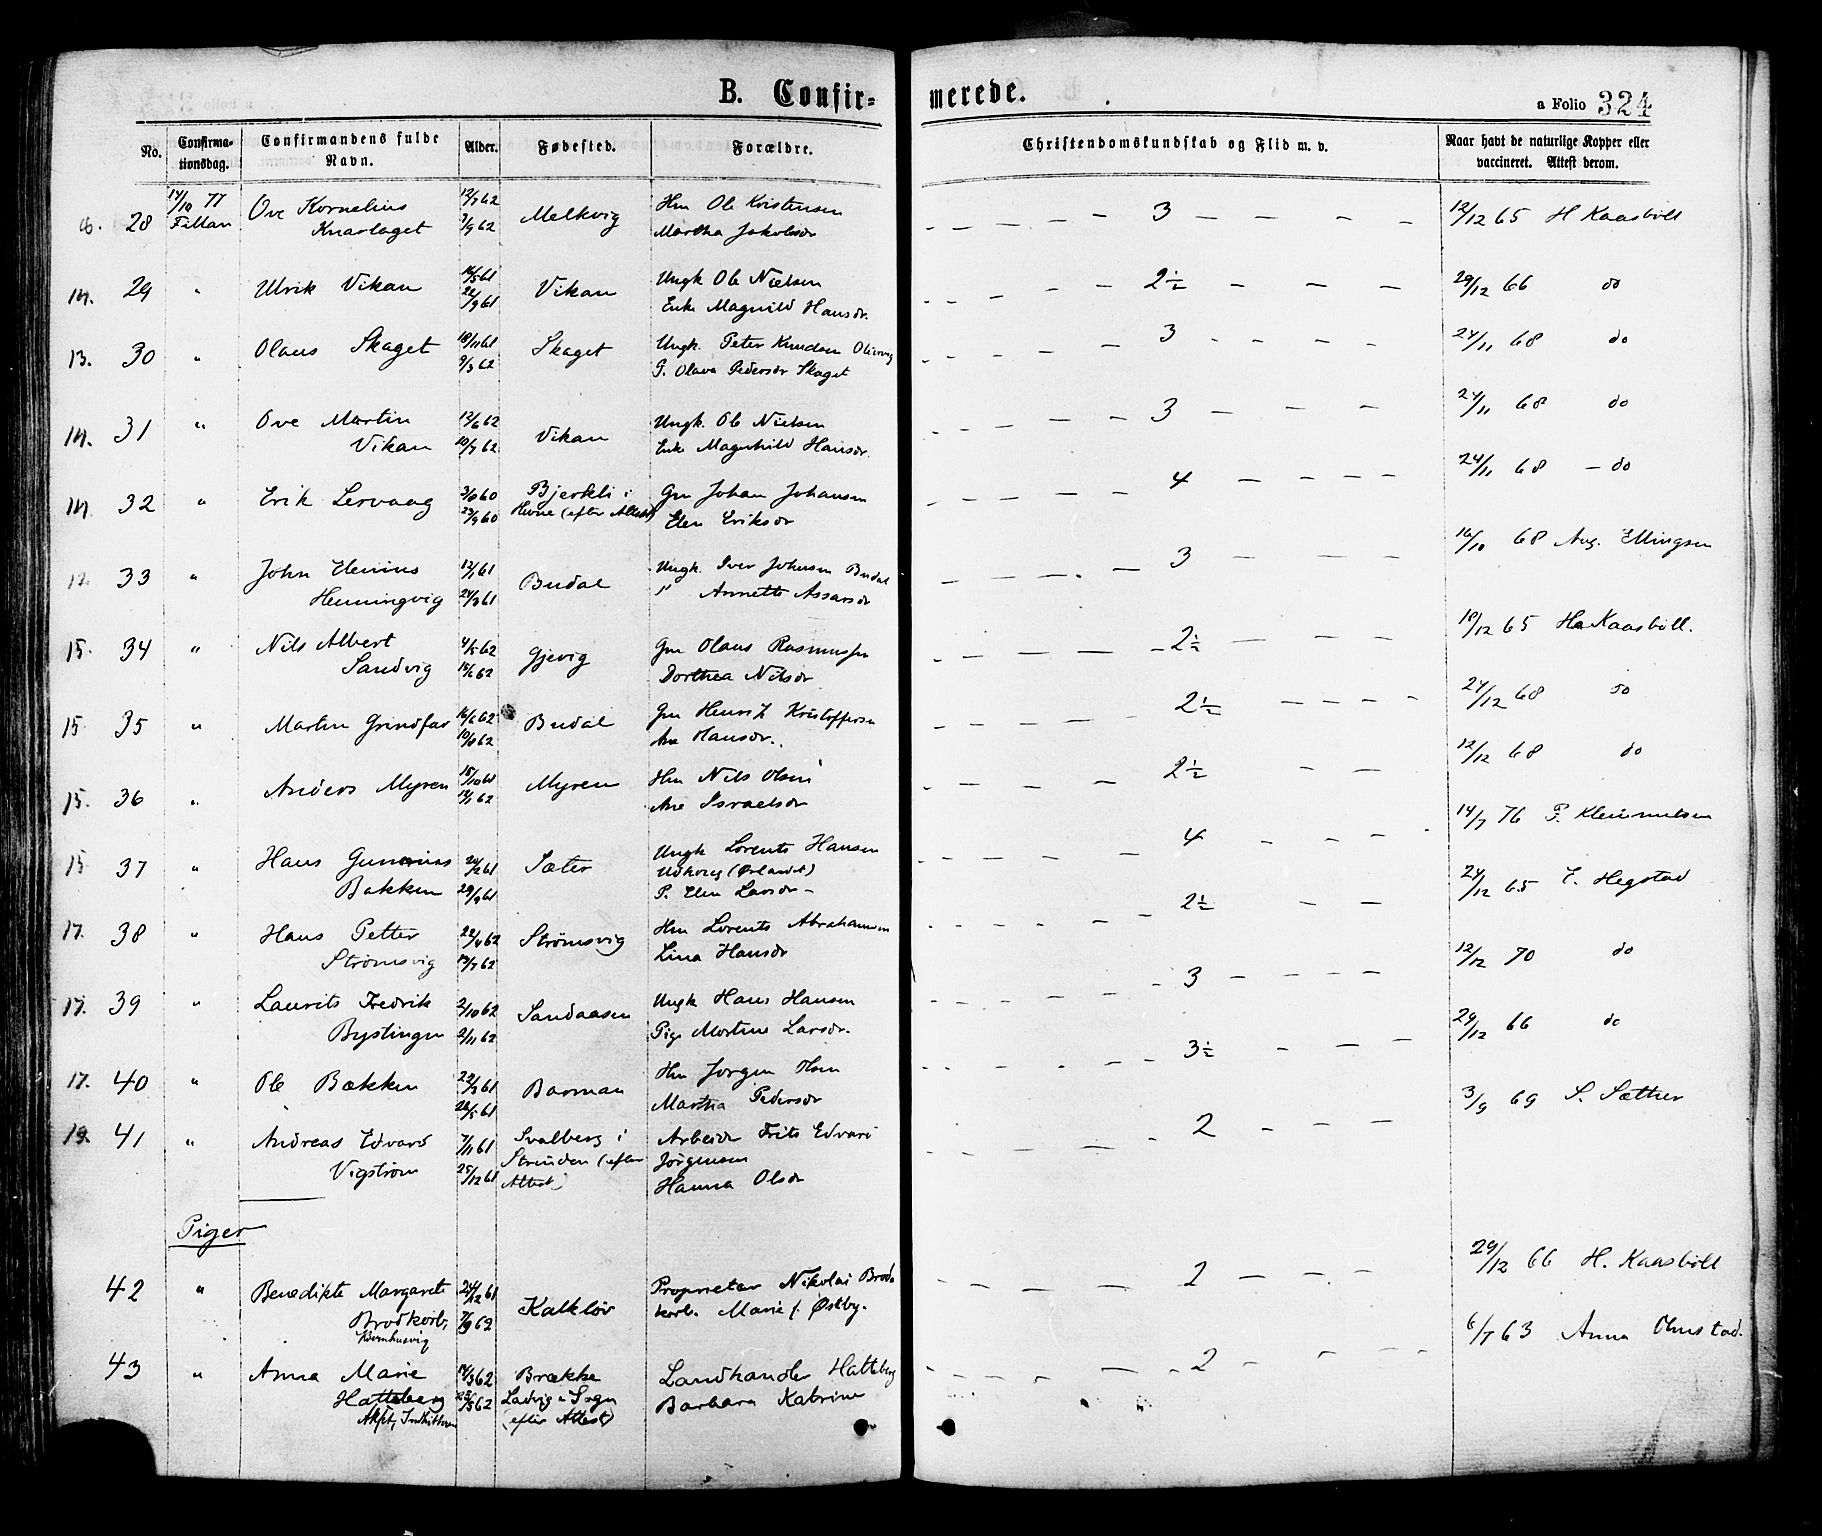 B. Confir-
merede.
a Folio 324
No.
Confirma-
tionsdag.
Confirmandens fulde
Navn.
Alder.
Fødested.
Forældre.
Christendomskundskab og Flid m. v.
Naar havt de naturlige Kopper eller
vaccineret. Attest derom.
28 14/10 77 Ove Kornelius 12/7 62 Melkvig Hm Ole Kristensen 3 12/12 65 H Kaasbøll
Fillan Knarlaget 3/9 62 Martha Jakobsdr
14. 29 " Ulrik Vikan 16/5 61 Vikan Ungk Ole Nielsen 2½ 29/12 66 do
22/9 61 Enke Magnild Hansdr.
13. 30 " Olaus Skaget 18/11 61 Skaget Ungk. Peter Knudsen 3 24/11 68 do
9/3 62 P. Olava Pedersdr Skaget
14. 31 " Ove Martin 12/6 62 Vikan Ungk. Ole Nielsen 3 24/11 68 do
Vikan 10/7 62 Enke Magnhild Hansdr.
14. 32 " Erik Lervaag 3/8 60 Bjerkli i Gm Johan Johansen 4 24/11 68 - do
23/9 60 Hevne (efter Attest) Elen Eriksdr
12. 33 " John Elenius 12/1 61 Budal Ungk. Iver Johnsen Budal 3 16/10 68 Aug. Ellingsen
Henningvig 24/3 61 " Annette Assarsdr
15. 34 " Nils Albert 4/5 62 Gjevig Gm Olaus Rasmussen 2½ 18/12 65 H Kaasbøll.
Sandvig 15/6 62 Dorthea Nilsdr
15. 35 " Martin Grindfar 16/6 62 Budal Gm Henrik Kristoffersen 2½ 24/12 68 do
10/8 62 Ane Hansdr.
15. 36 " Anders Myren 15/10 61 Myren Hm Nils Olsen 2½ 12/12 68 do
12/1 62 Ane Israelsdr
15 37 " Hans Gunerius 24/2 61 Sæter Ungk Lorents Hansen 4 14/7 76 P. Klemmetsen
Bakken 29/9 61 Udhoug (Ørlandet)
P. Elen Larsdr -
17. 38 " Hans Petter 22/4 62 Strømsvig Hm Lorents Abrahamsen 2½ 24/12 65 E. Hegstad
Strømsvig 13/7 62 Lina Hansdr
17. 39 " Laurits Fredrik 2/10 62 Sandaasen Ungk Hans Hansen 3 12/12 70 do
Bystingen 2/11 62 Pige Martine Larsdr.
17. 40 " Ole Bækken 29/3 61 Barman Hm Jørgen Olsen 3½ 29/12 66 do
26/5 61 Martha Pedersdr
19. 41 " Andreas Edvard 7/11 61 Svalberg i Arbeider Frits Edvard 2 3/9 69 S. Sæther
Vigstrøm 25/12 61 Strinden (efter Jørgensen
Attest) Hanna Olsdr
Piger
42 " Benedikte Margarete 24/12 61 Kalkløv Proprietær Nikolai Brod 2 29/12 66 H. Kaasbøll
Brodkorb, 7/9 62 korb. Marie f. Østby.
Kjernhusvig
43 " Anna Marie 14/3 62 Brække Landhandler Hatteberg 2 6/7 63 Anna Olmstad.
Hatteberg 25/5 62 Ladvig i Sogn Barbara Katrine
(efter Attest)